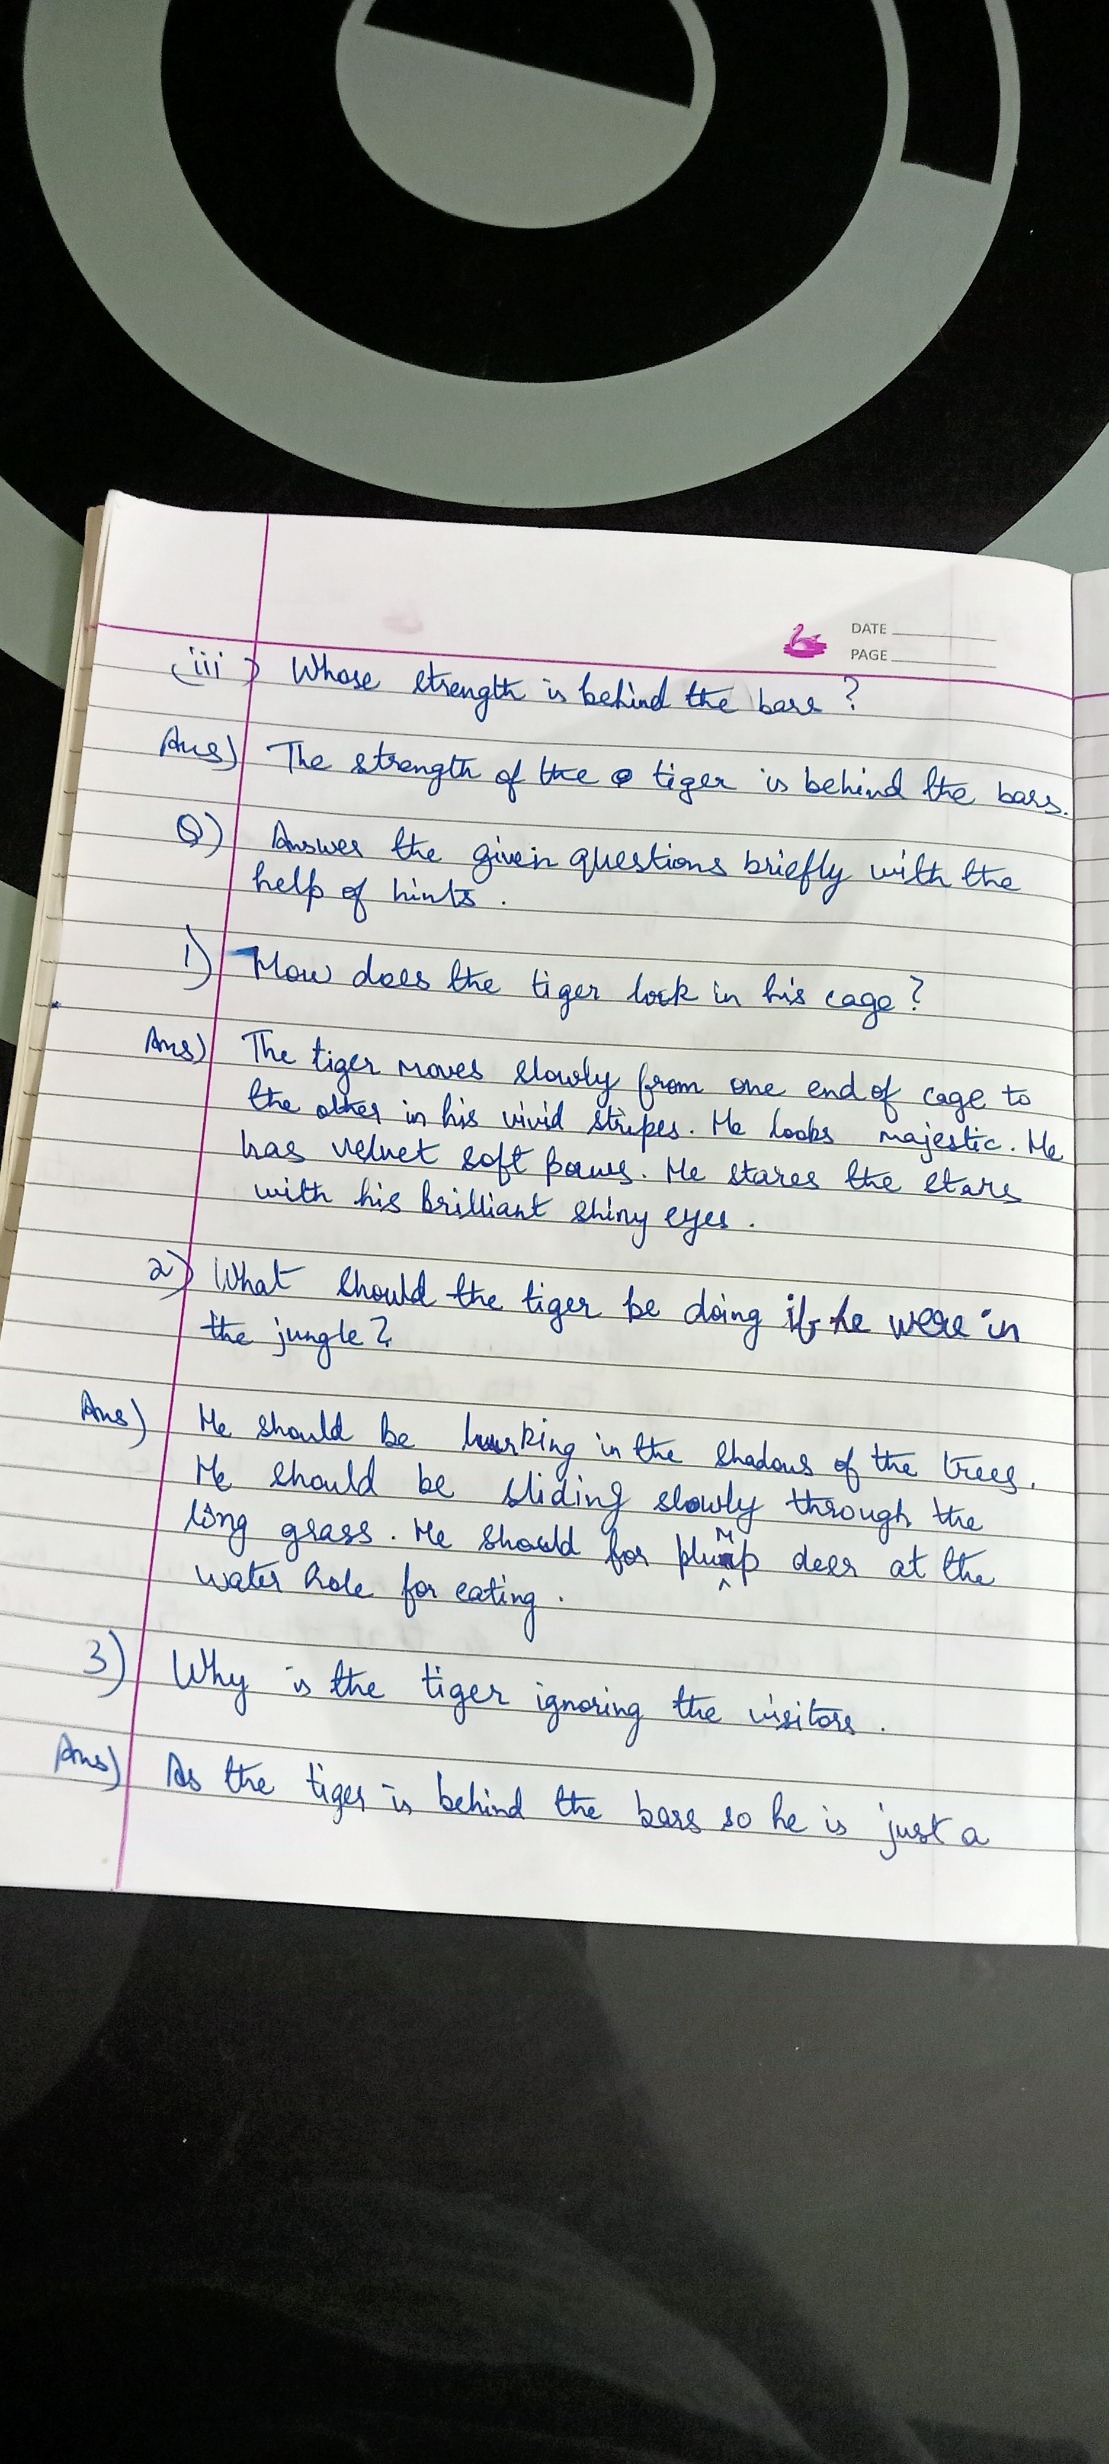 DATE
PAGE
(iii) Whose strength is behind the bars ?
Ans) The strength of the tiger is behind the bars.
Q) Answer the given questions briefly with the
help of hints .
1) How does the tiger look in his cage ?
Ans) The tiger moves slowly from one end of cage to
the other in his vivid stripes. He looks majestic. He
has velvet soft paws. He stares the stars
with his brilliant shiny eyes .
2) What should the tiger be doing if he were in
the jungle ?
Ans) He should be lurking in the shadows of the trees.
He should be sliding slowly through the
long grass . He should for plump deer at the
water hole for eating .
3) Why is the tiger ignoring the visitors .
Ans) As the tiger is behind the bars so he is just a